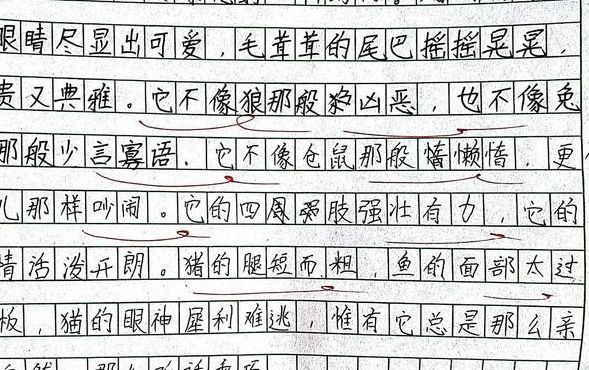 眼睛尽显出可爱，毛茸茸的尾巴摇摇晃晃，
贵又典雅。它不像狼那般凶恶，也不像兔
那般少言寡语，它不像仓鼠那般懒惰，更
儿那样吵闹。它的四肢强壮有力，它的
情活泼开朗。猪的腿短而粗，鱼的面部太过
板，猫的眼神犀利难逃，惟有它总是那么亲